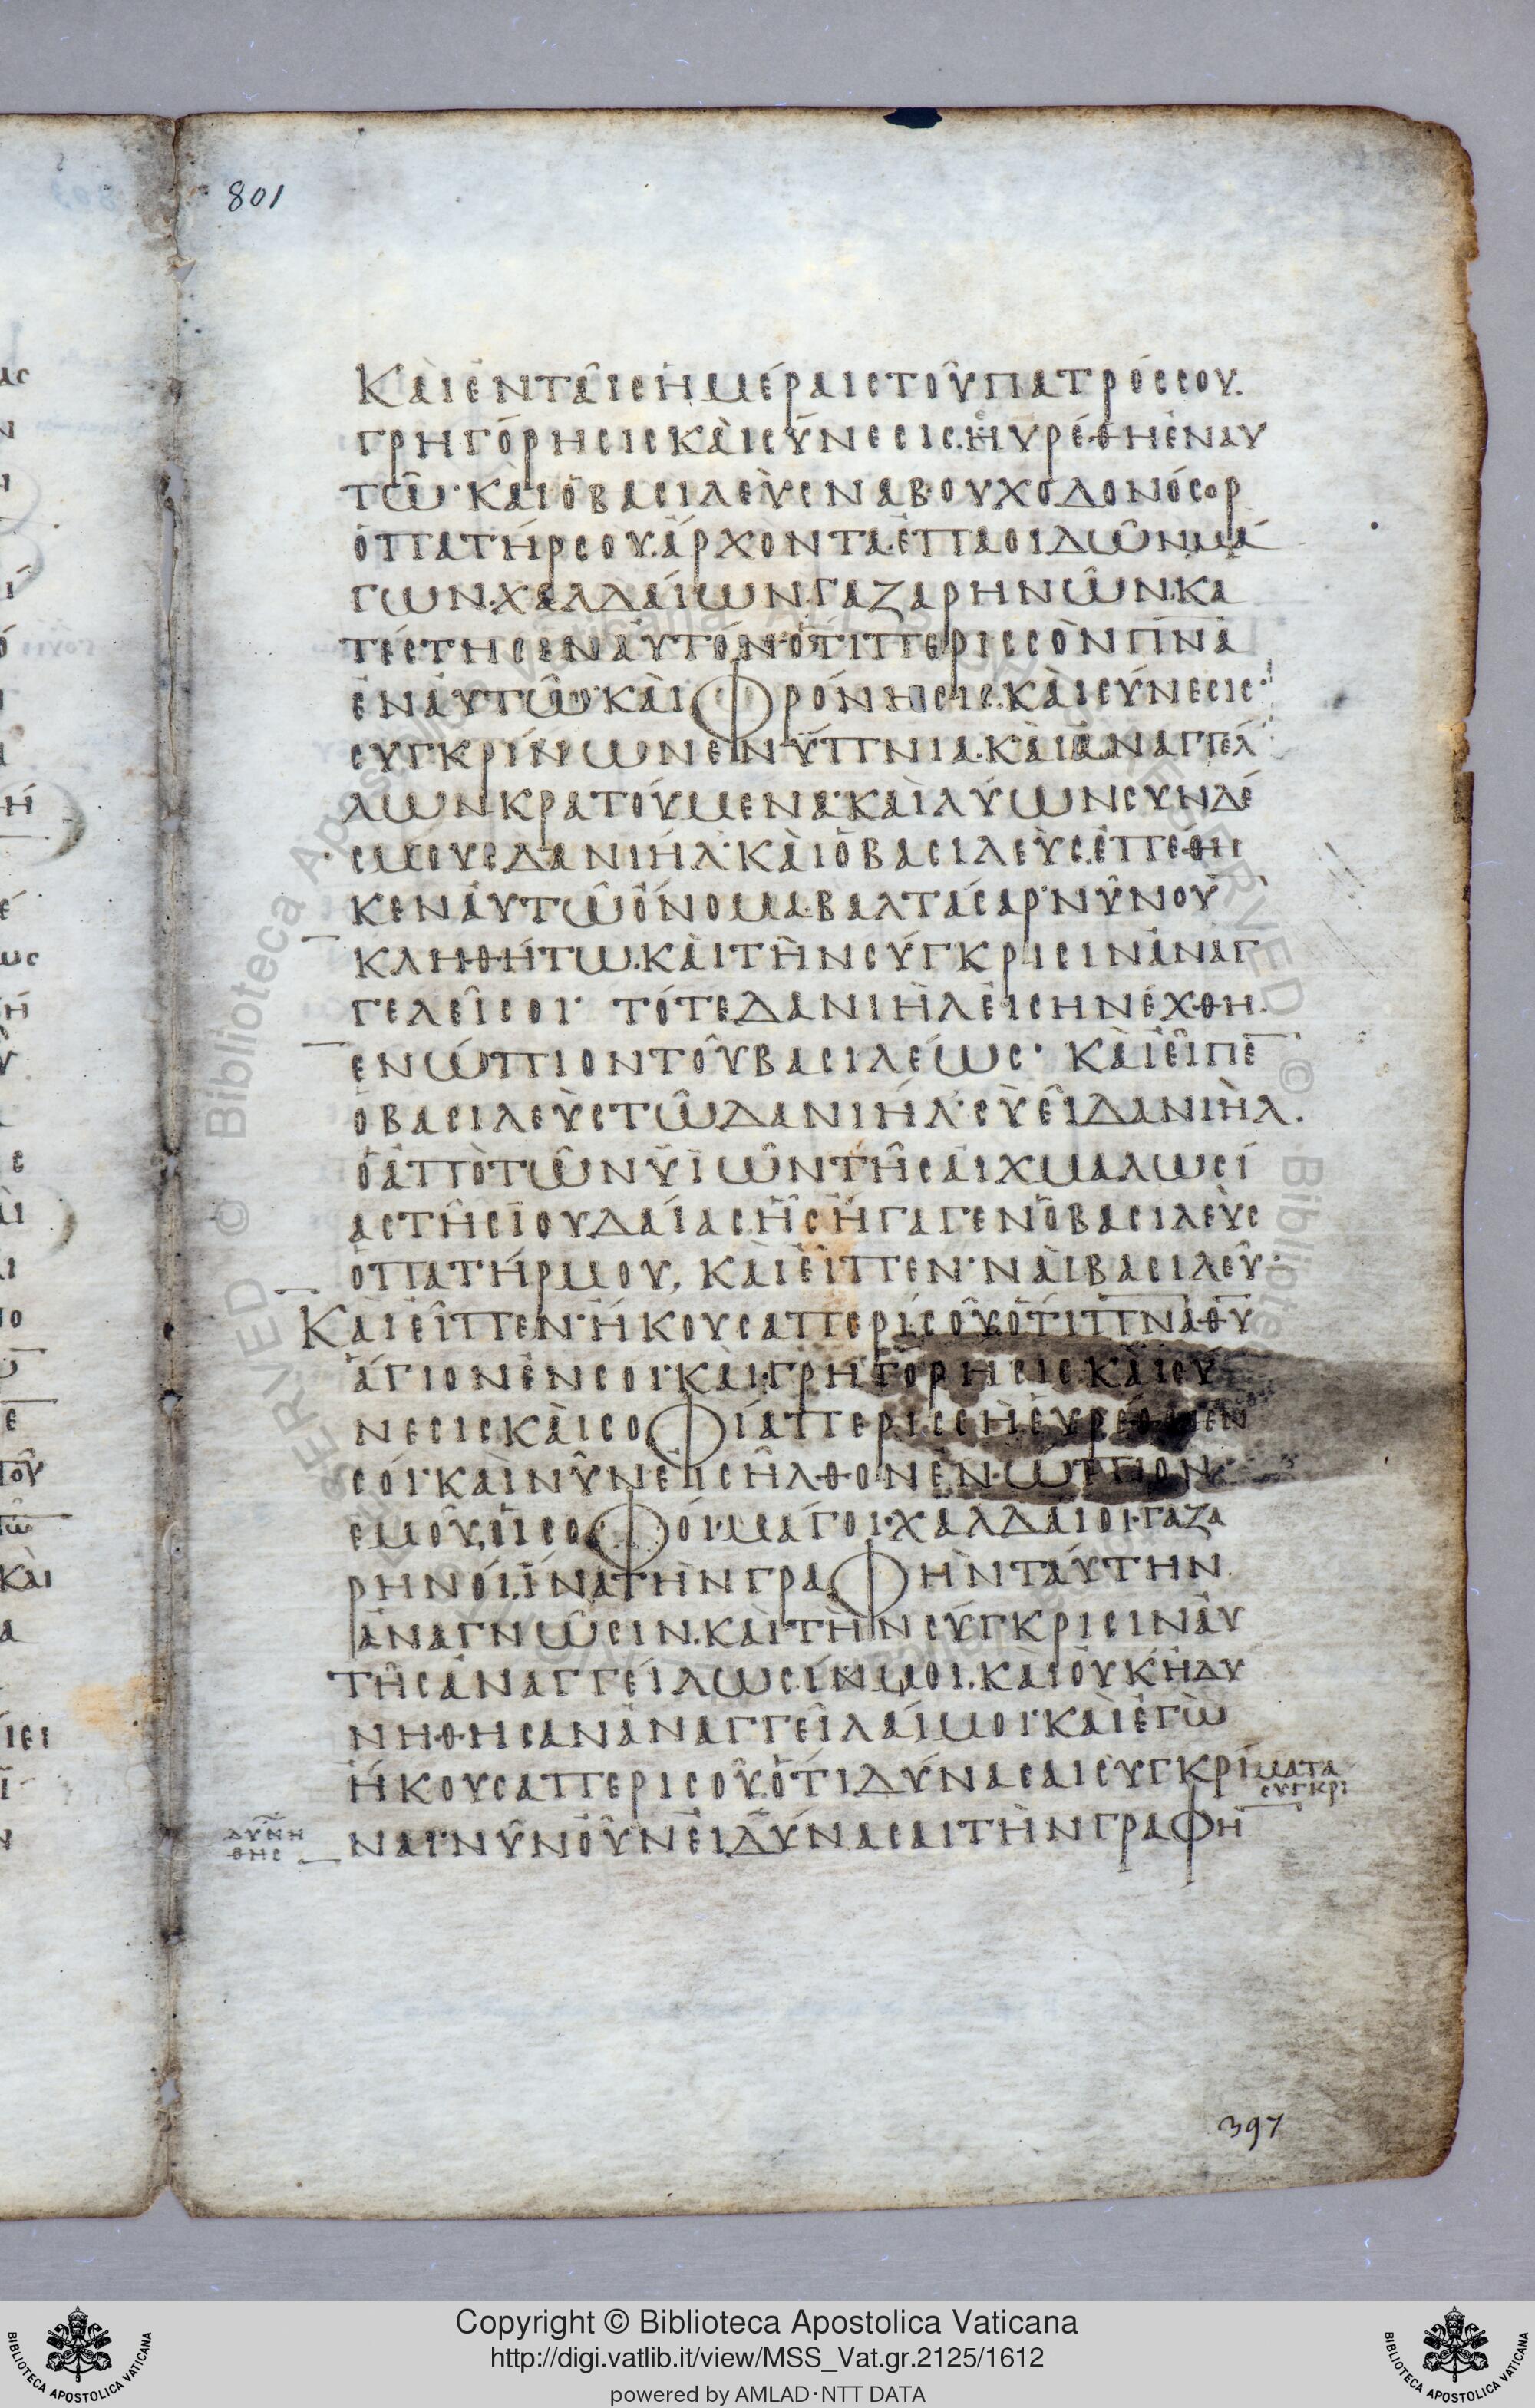 801
Κὰι ἐν ταῖς ἡμέραις τοῦ πατρός σου.
γρηγόρησις κὰι σύνεσις. ἡυρέθη ἐν αυ
τῶ· κὰι ὁ βασιλεὺς ναβουχοδονόσορ
ὁ πατήρ σου. ἄρχοντα ἐπαοιδῶν μά
γων· χαλδάιων· γαζαρηνῶν. κα
τέστησεν ἀυτόν· ὅτι περισσὸν π̅ν̅α̅
ἐν ἀυτῶ· κὰι φρόνησις. κὰι σύνεσις·
συγκρίνων ἐνύπνια. κὰι ἀναγγελ
λων κρατούμενα· κὰι λύων συνδέ
σμους δανιήλ· κὰι ὁ βασιλεὺς. ἐπέθη
κεν ἀυτῶ ὄνομα. βαλτάσαρ· νῦν οὖ
κληθήτω. κὰι τὴν σύγκρισιν ἀναγ
γελεῖ σοι· τότε δανιὴλ ἐισηνέχθη.
ἐνώπιον τοῦ βασιλέως· κὰι ἐῖπε
ὁ βασιλεὺς τῶ δανιήλ· σὺ εἶ δανιὴλ.
ὁ ἀπὸ τῶν ϋἱῶν τῆς ἀιχμαλωσί
ας τῆς ϊουδάιας ἧς ἤγαγεν ὁ βασιλεὺς
ὁ πατήρ μου, κὰι ἐῖπεν· νὰι βασιλεῦ·
Κὰι ἐῖπεν· ἤκουσα περὶ σοῦ. ὅτι π̅ν̅α̅ θ̅υ̅
ἅγιον ἐν σοι· κὰι γρηγόρησις κὰι σύ
νεσις κὰι σοφία περισσὴ εὑρέθη ἐν
σόι· κὰι νῦν ἐισῆλθον ἐνώπιον
ἐμοῦ, ὁι σοφόι· μάγοι· χαλδάιοι· γαζα
ρηνόι, ἵνα τὴν γραφὴν τάυτην
ἀναγνῶσιν. κὰι τὴν σύγκρισιν ἀυ
τῆς ἀναγγείλωσίν μοι. κὰι ὀυκ ἠδυ
νήθησαν ἀναγγεῖλάι μοι· κὰι ἐγὼ
ἤκουσα περὶ σοῦ. ὅτι δύνασαι συγκρίματα
συγκρι
ναι· νῦν ὀῦν ἐι δύνασαι τὴν γραφη̅
δυνη
θης
397
Copyright © Biblioteca Apostolica Vaticana
http://digi.vatlib.it/view/MSS_Vat.gr.2125/1612
powered by AMLAD·NTT DATA
BIBLIOTECA APOSTOLICA VATICANA
BIBLIOTECA APOSTOLICA VATICANA